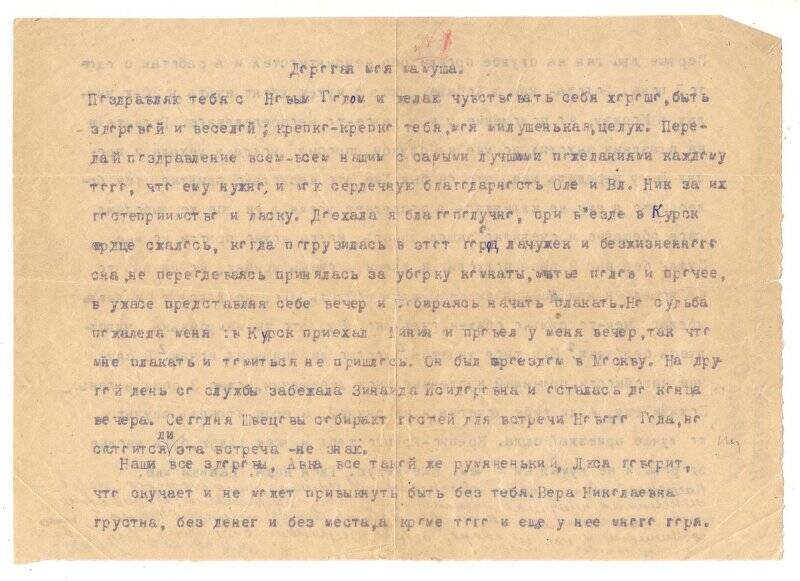 № 1
Дорогая моя мамуша.
Поздравляю тебя с Новым Годом и желаю чувствовать себя хорошо, быть
здоровой и веселой; крепко-крепко тебя, моя милушенькая, целую. Пере-
дай поздравление всем-всем нашим с самыми лучшими пожеланиями каждому
того, что ему нужно, и мою сердечную благодарность Оле и Вл. Ник за их
гостеприимство и ласку. Доехала я благополучно, при в'езде в Курск
сердце сжалось, когда погрузилась в этот город лачужек и безжизненного
сна, не переодеваясь принялась за уборку комнаты, мытье полов и прочее,
в ужасе представляя себе вечер и собираясь начать плакать. Но судьба
пожалела меня : в Курск приехал Минин и провел у меня вечер, так что
мне плакать и томиться не пришлось. Он был проездом в Москву. На дру
гой день со службы забежала Зинаида Исидоровна и осталась до конца
вечера. Сегодня Швецовы собирают гостей для встречи Нового Года, но
состоится ли эта встреча -не знаю.
Наши все здоровы, Авка все такой же румяненький, Люся говорит,
что скучает и не может привыкнуть быть без тебя. Вера Николаевна
грустна, без денег и без места, а кроме того и еще у нее много горя.